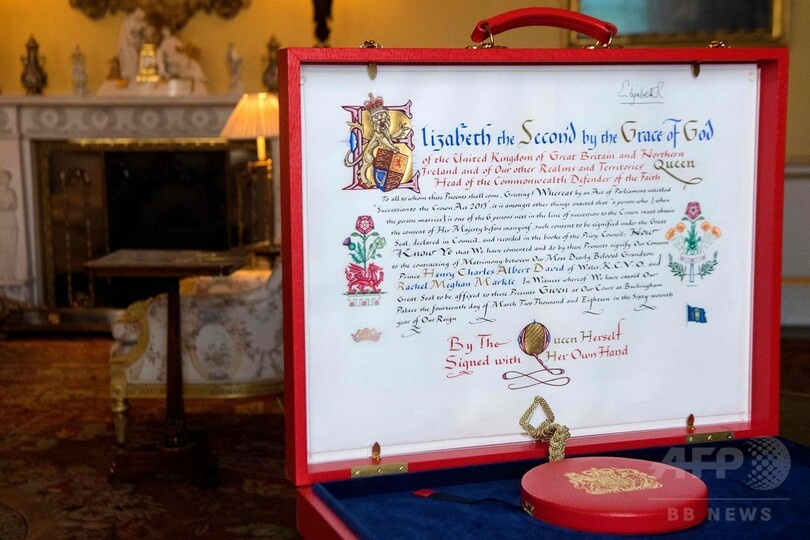 Elizabeth R
Elizabeth the Second by the Grace of God
of the United Kingdom of Great Britain and Northern
Ireland and of Our other Realms and Territories Queen
Head of the Commonwealth Defender of the Faith
To all to whom these Presents shall come, Greeting! Whereas by an Act of Parliament entitled
"Succession to the Crown Act 2013", it is amongst other things enacted that "a person who (when
the person marries) is one of the 6 persons next in the line of succession to the Crown must obtain
the consent of Her Majesty before marrying", such consent to be signified under the Great
Seal, declared in Council, and recorded in the books of the Privy Council: Now
Know Ye that We have consented and do by these Presents signify Our Consent
to the contracting of Matrimony between Our Most Dearly Beloved Grandson
Prince Henry Charles Albert David of Wales, K.C.V.O., and
Rachel Meghan Markle. In Witness whereof We have caused Our
Great Seal to be affixed to these Presents Given at Our Court at Buckingham
Palace the fourteenth day of March Two Thousand and Eighteen in the Sixty-seventh
year of Our Reign
By The Queen Herself
Signed with Her Own Hand
AFP
BB NEWS